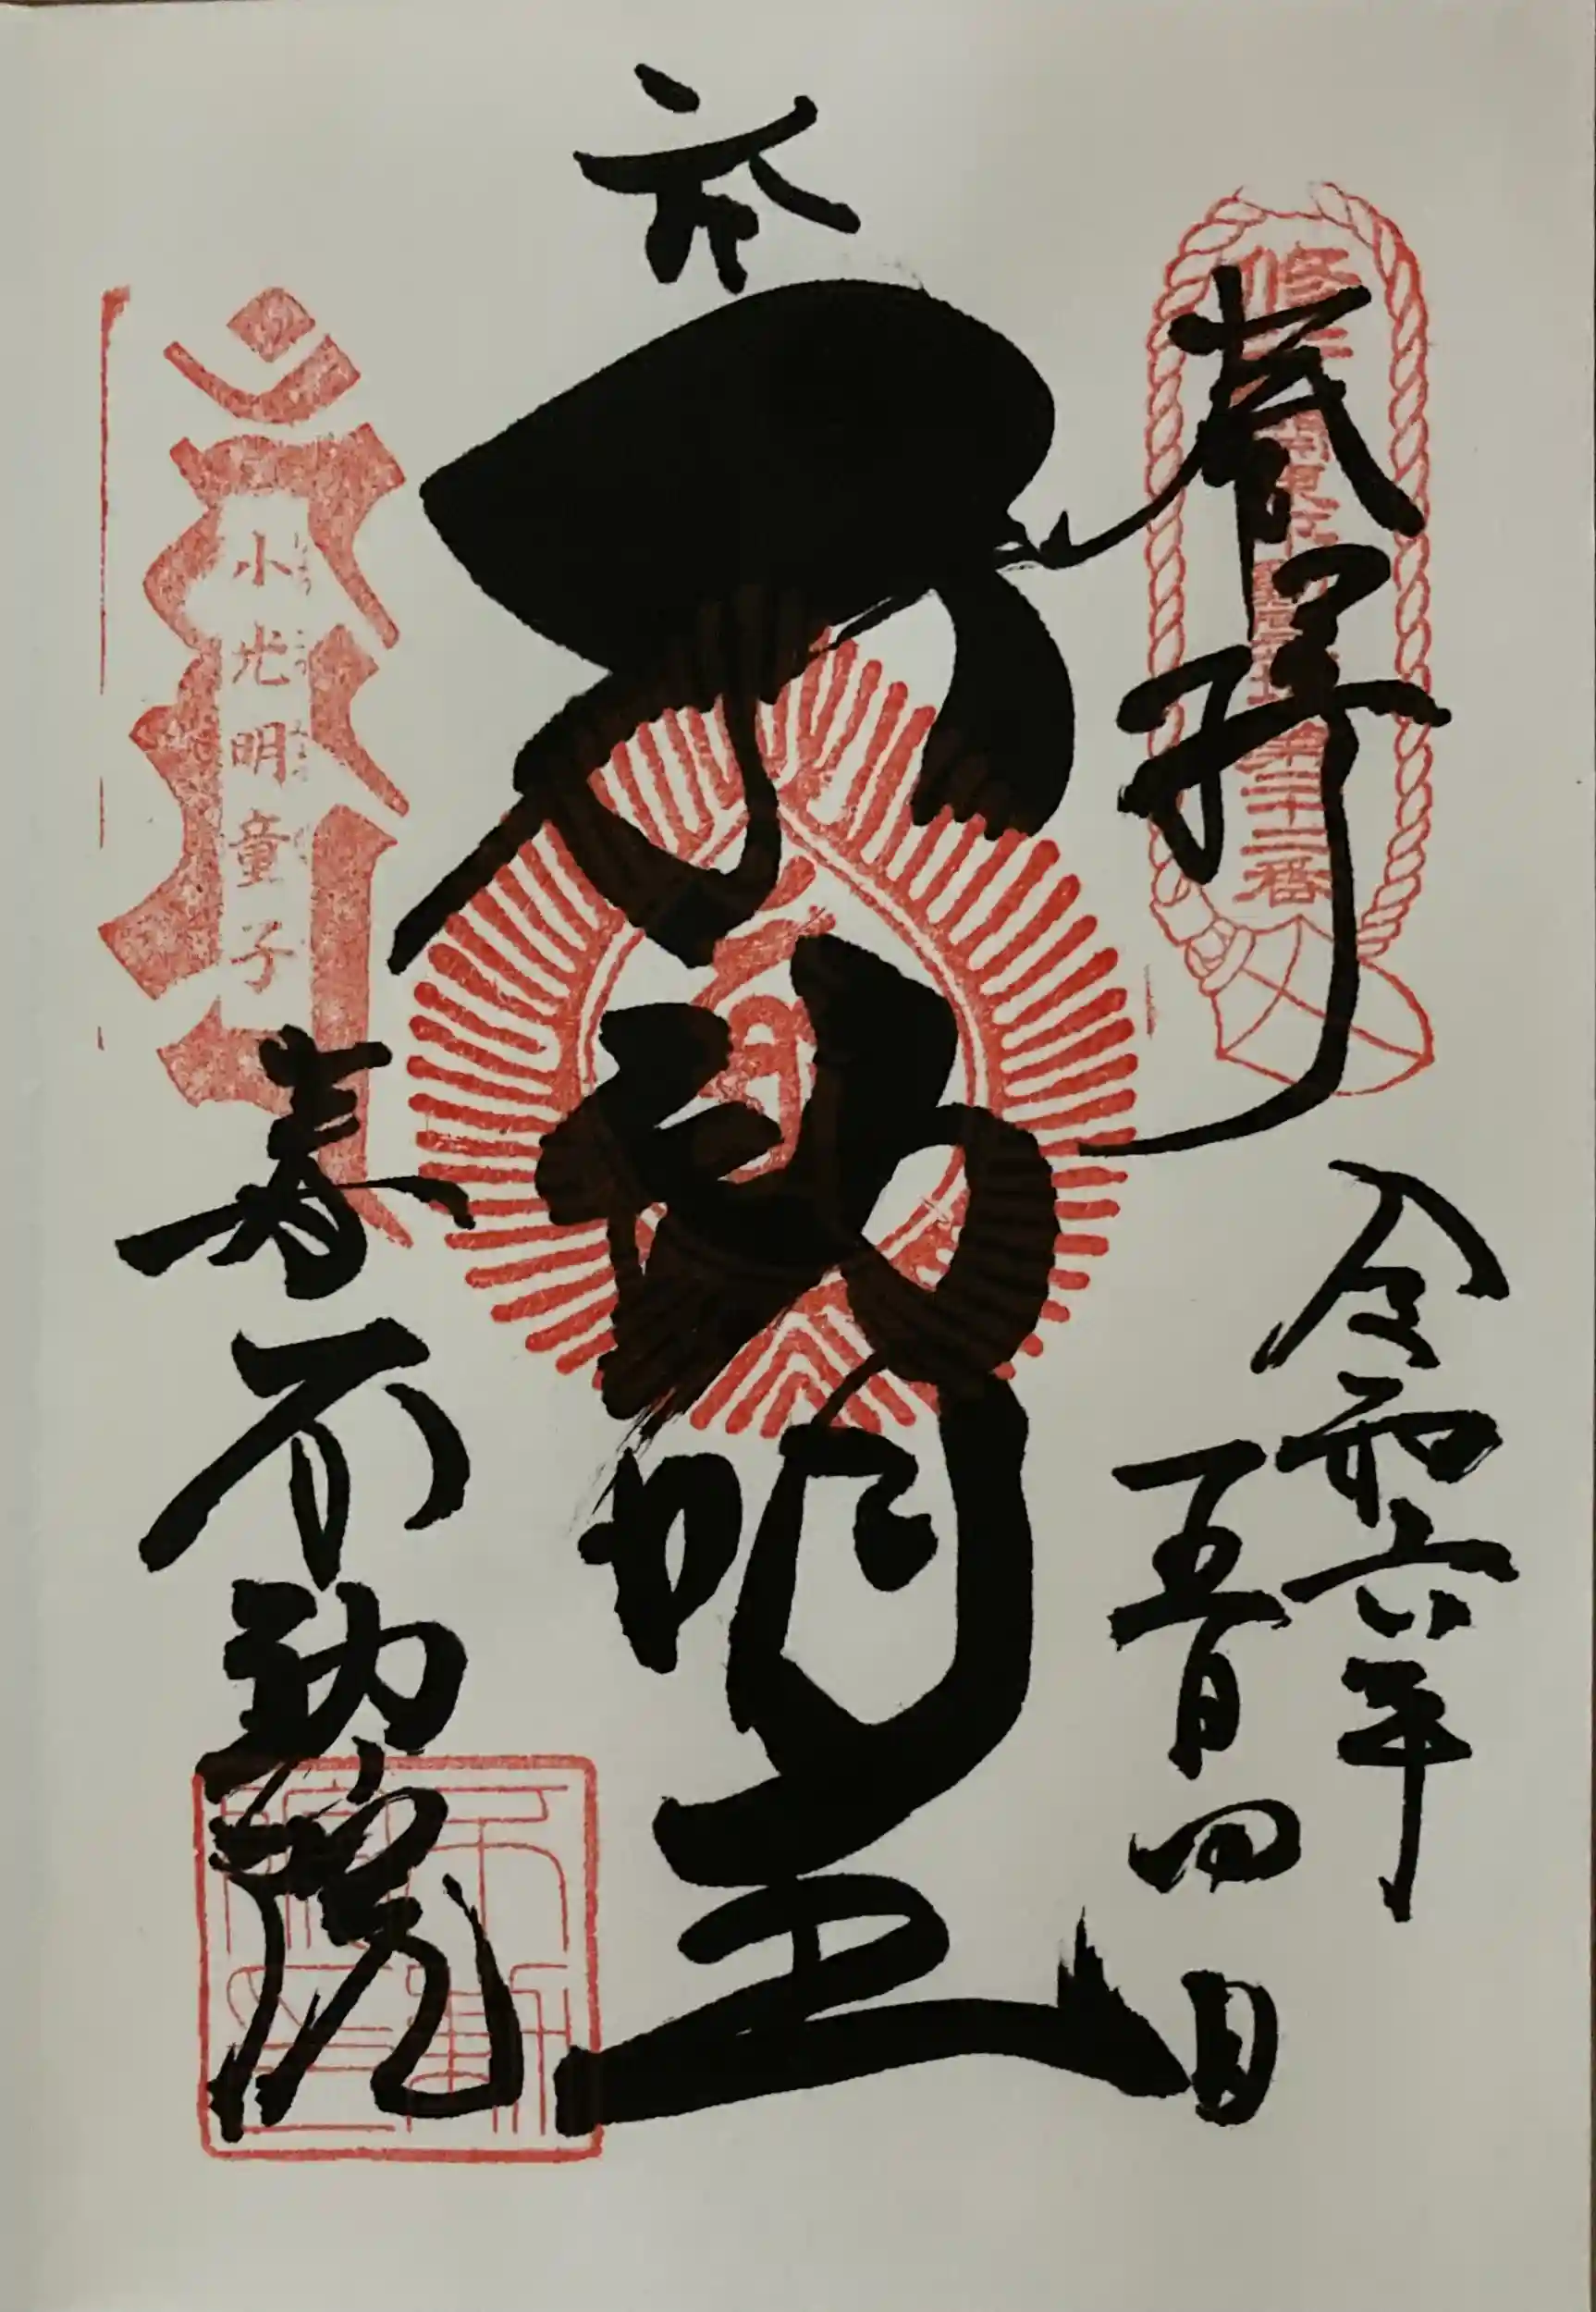 奉拝
令和六年
五月四日
不動明王
小光明童子
寿不動院